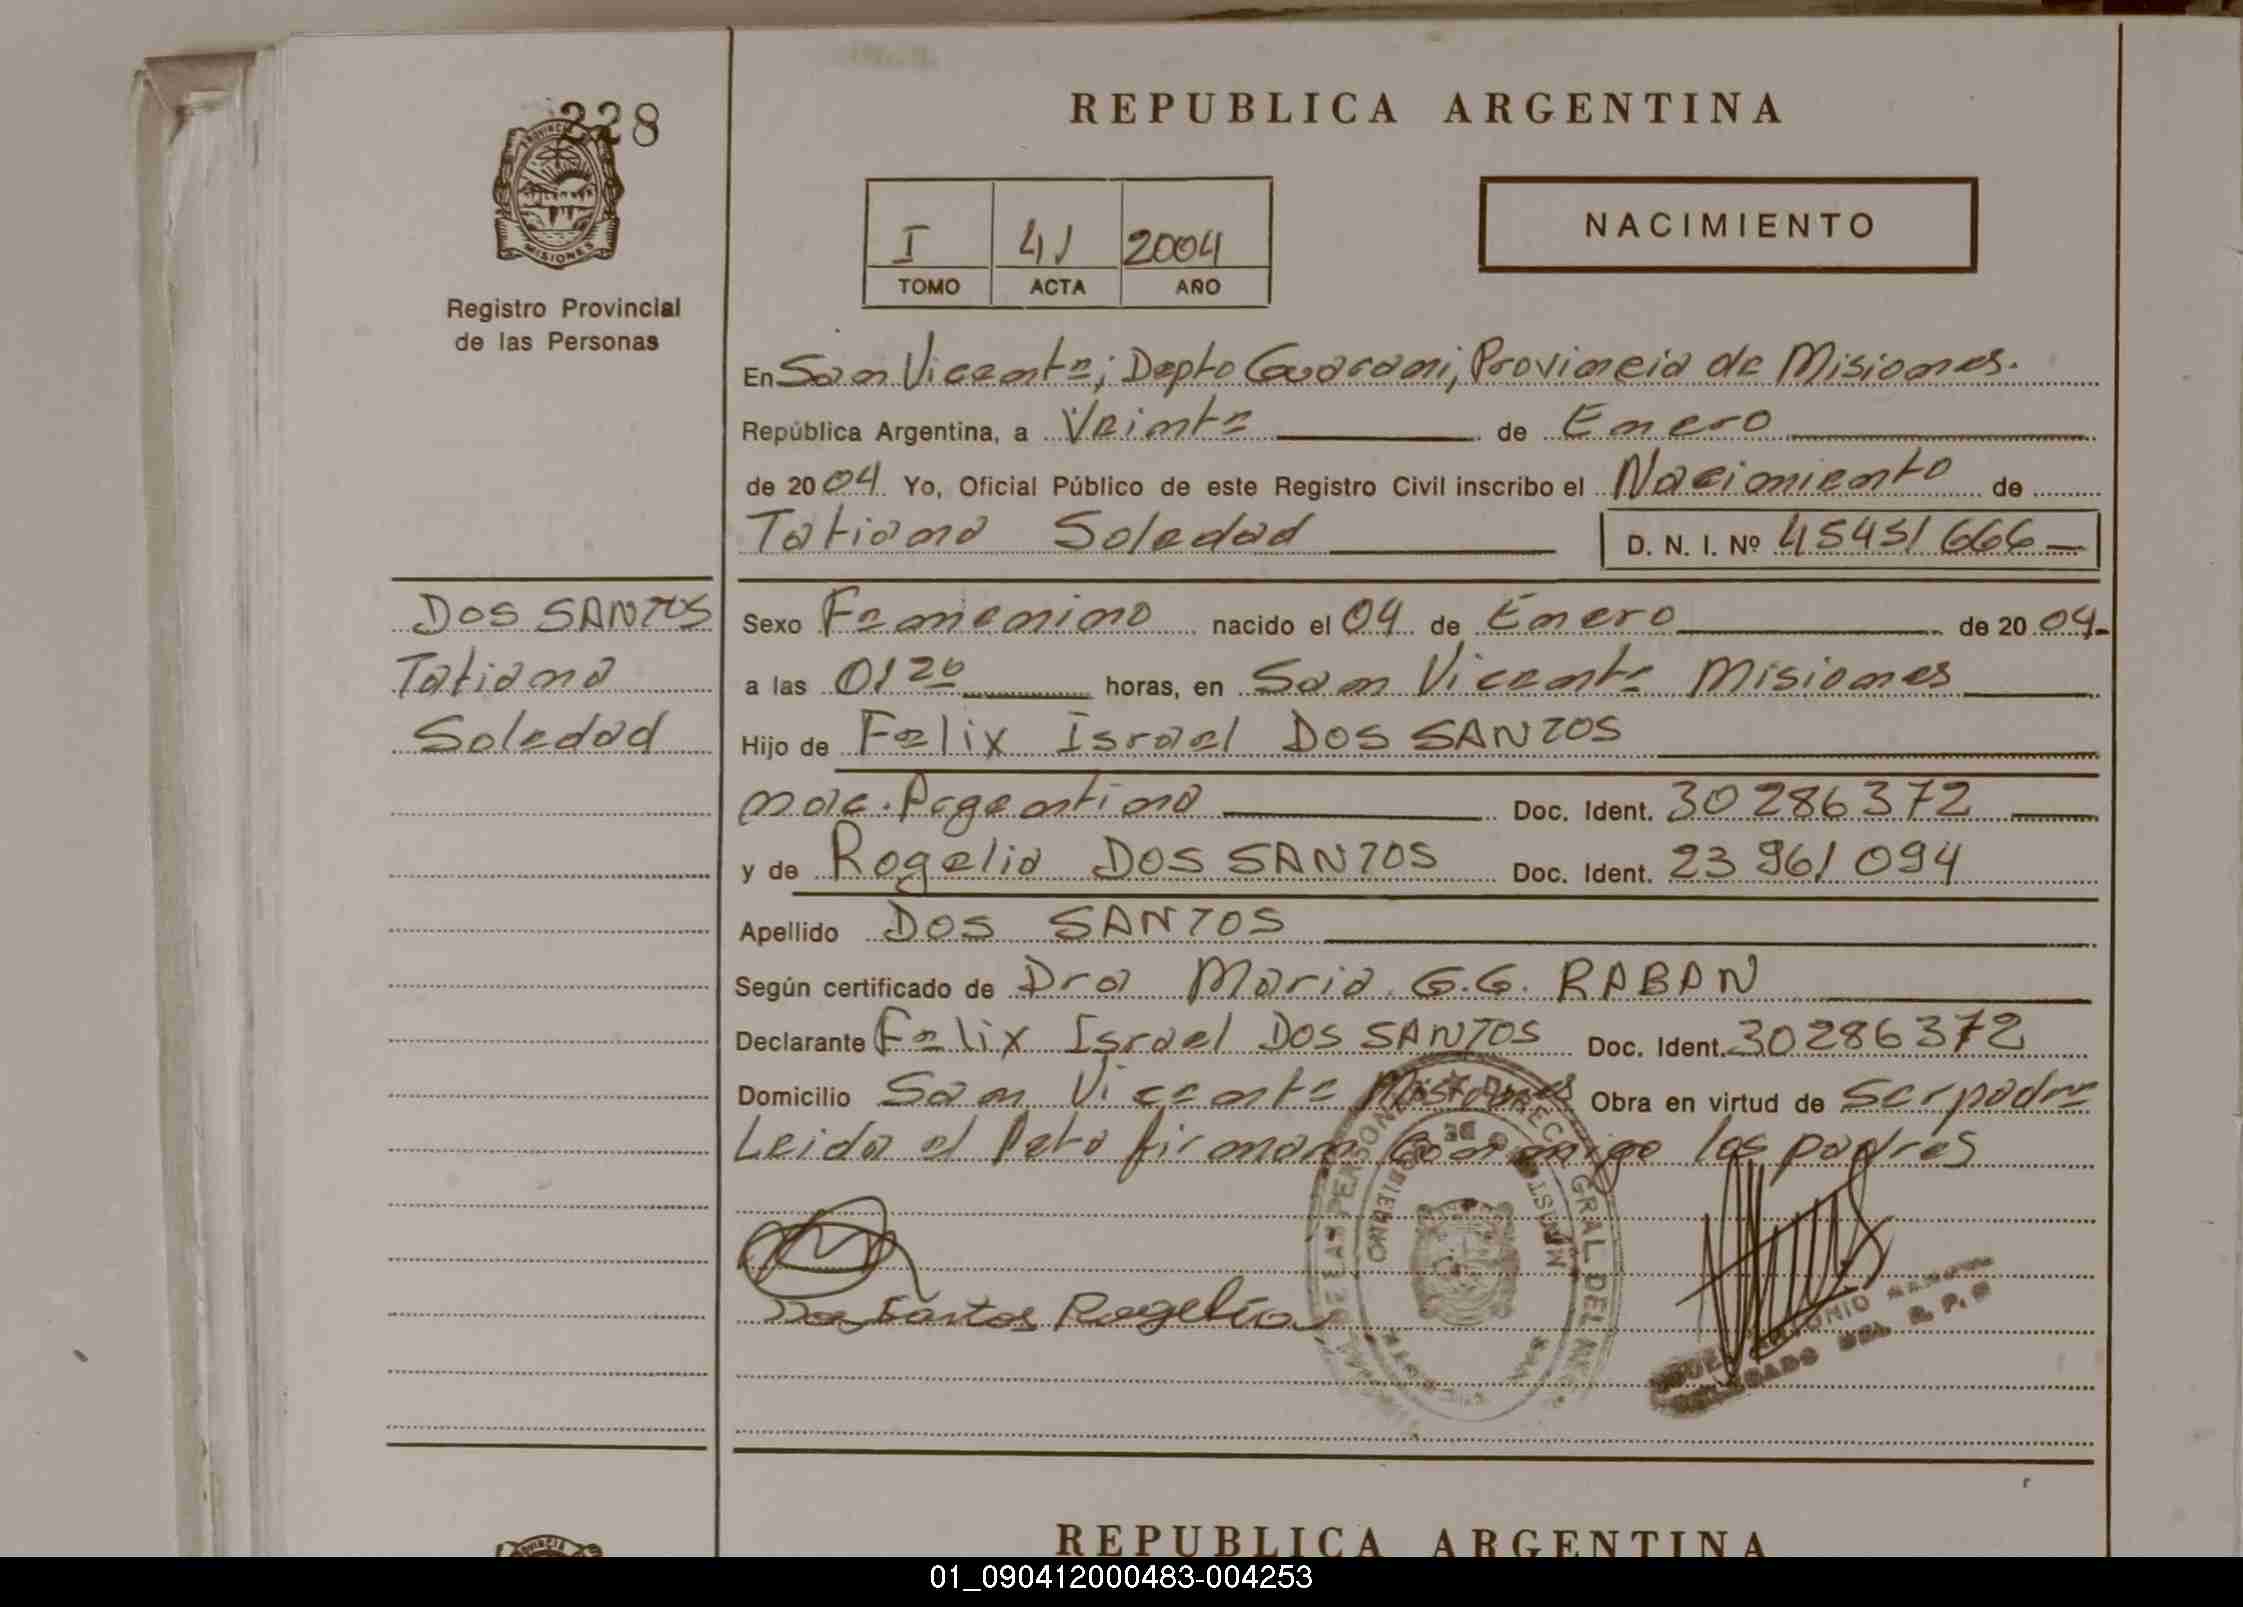 228
PROVINCIA
MISIONES
Registro Provincial
de las Personas
REPUBLICA ARGENTINA
NACIMIENTO
I 41 2004
TOMO ACTA AÑO
En San Vicente; Depto Guarani, Provincia de Misiones.
República Argentina, a Veinte de Enero
de 2004 Yo, Oficial Público de este Registro Civil inscribo el Nacimiento de
Tatiana Soledad D. N. I. Nº 45451666
DOS SANTOS
Tatiana
Soledad
Sexo Femenino nacido el 04 de Enero de 2004
a las 0120 horas, en San Vicente Misiones
Hijo de Felix Israel DOS SANTOS
nac. Argentina Doc. Ident. 30286372
y de Rogelia DOS SANTOS Doc. Ident. 23961094
Apellido DOS SANTOS
Según certificado de Dra Maria G.G. RABAN
Declarante Felix Israel DOS SANTOS Doc. Ident. 30286372
Domicilio San Vicente Misiones Obra en virtud de ser padre
Leida el Acta firman conmigo los padres
Dos Santos Rogelia
DE LAS PERSONAS
GRAL DEL
GOBIERNO
ANTONIO
DELEGADO DEL R. P. P
REPUBLICA ARGENTINA
01_090412000483-004253